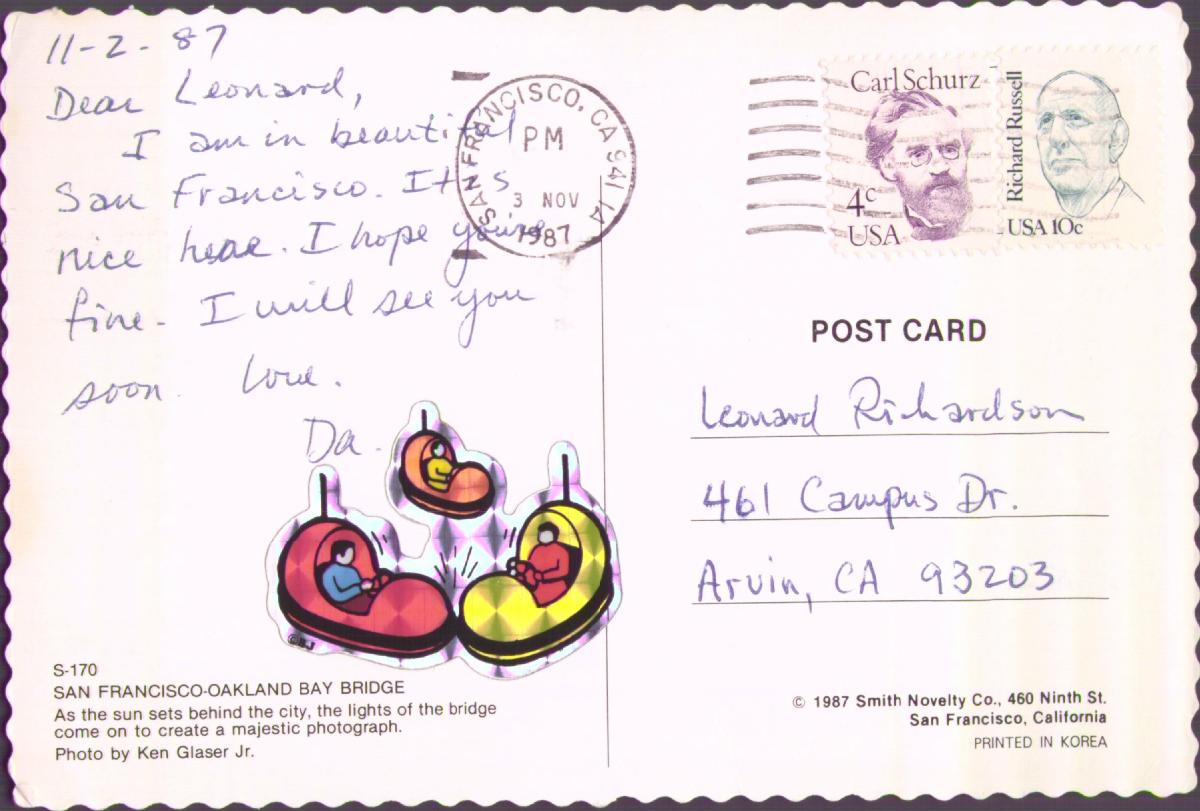 11-2-87
Dear Leonard,
I am in beautiful
San Francisco. It's
nice hear. I hope you're
fine. I will see you
soon. Love.
Da.
SAN FRANCISCO, CA 941 1A
PM
3 NOV
1987
Carl Schurz
4c
USA
Richard Russell
USA 10c
POST CARD
Leonard Richardson
461 Campus Dr.
Arvin, CA 93203
©BJ
S-170
SAN FRANCISCO-OAKLAND BAY BRIDGE
As the sun sets behind the city, the lights of the bridge
come on to create a majestic photograph.
Photo by Ken Glaser Jr.
© 1987 Smith Novelty Co., 460 Ninth St.
San Francisco, California
PRINTED IN KOREA